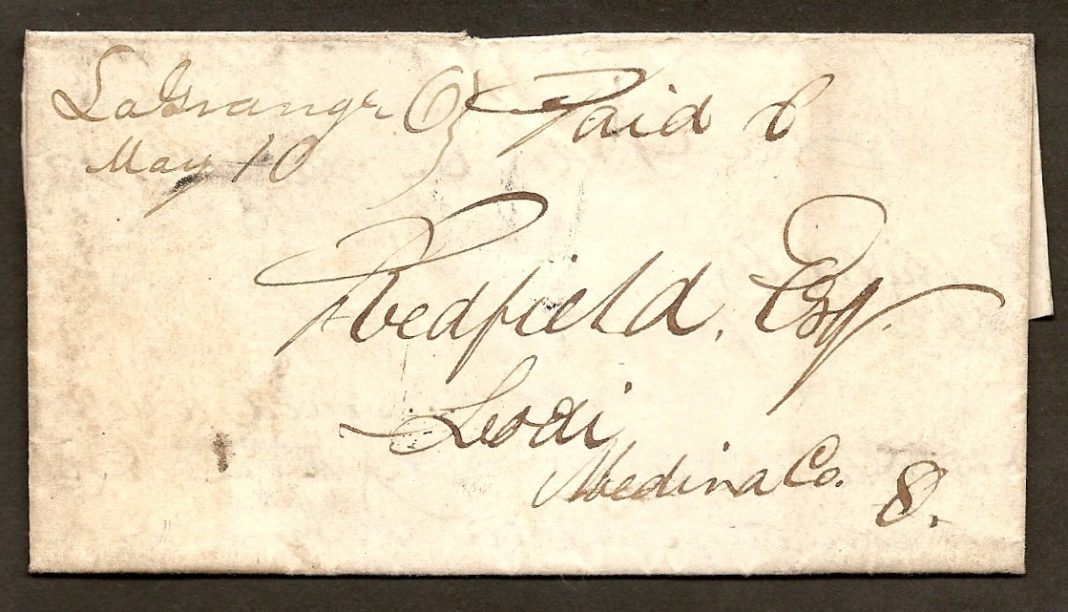 LaGrange O } Paid 6
May 10
Redfield, Esq.
Lodi
Medina Co.
8.